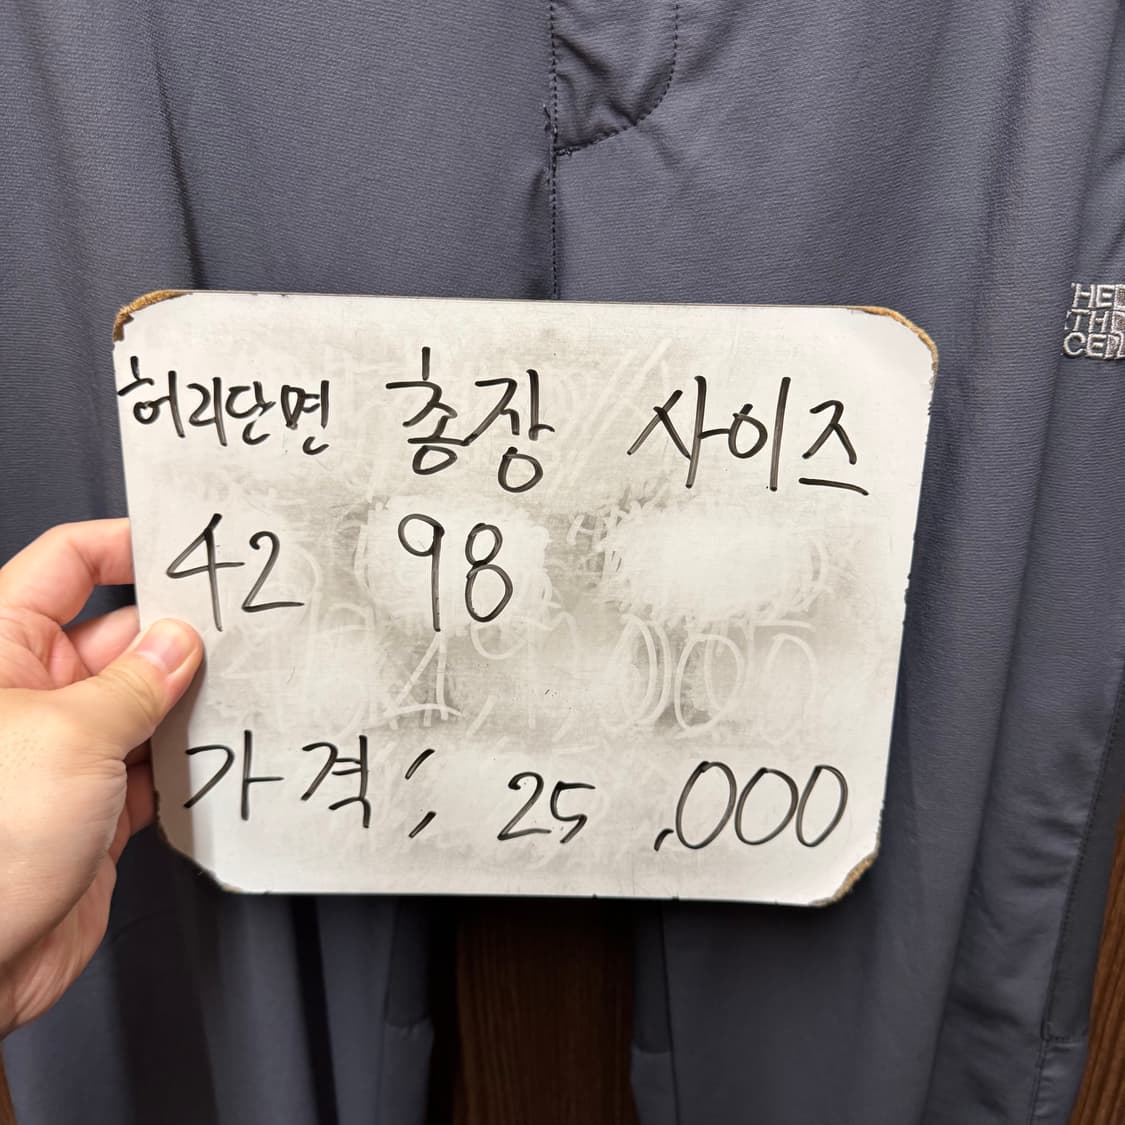 허리단면 총장 사이즈
42 98
가격; 25,000
THE
RTH
CE